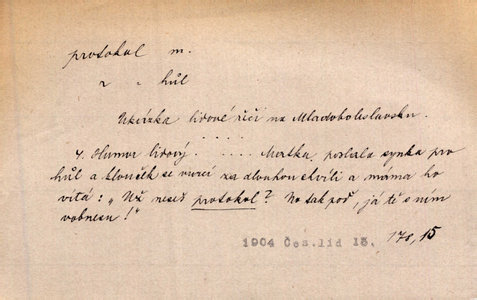 protokol m.
2 - hůl
Ukázka lidové řeči na Mladoboleslavsku.
. . . .
4. Humor lidový. . . . . . Matka poslala synka pro
hůl a klouček se vrací za dlouhou chvíli a máma ho
vítá: „Už neseš protokol? No tak poď, já tě s ním
vobnesu!"
1904 Čes. lid 13. 178, 15